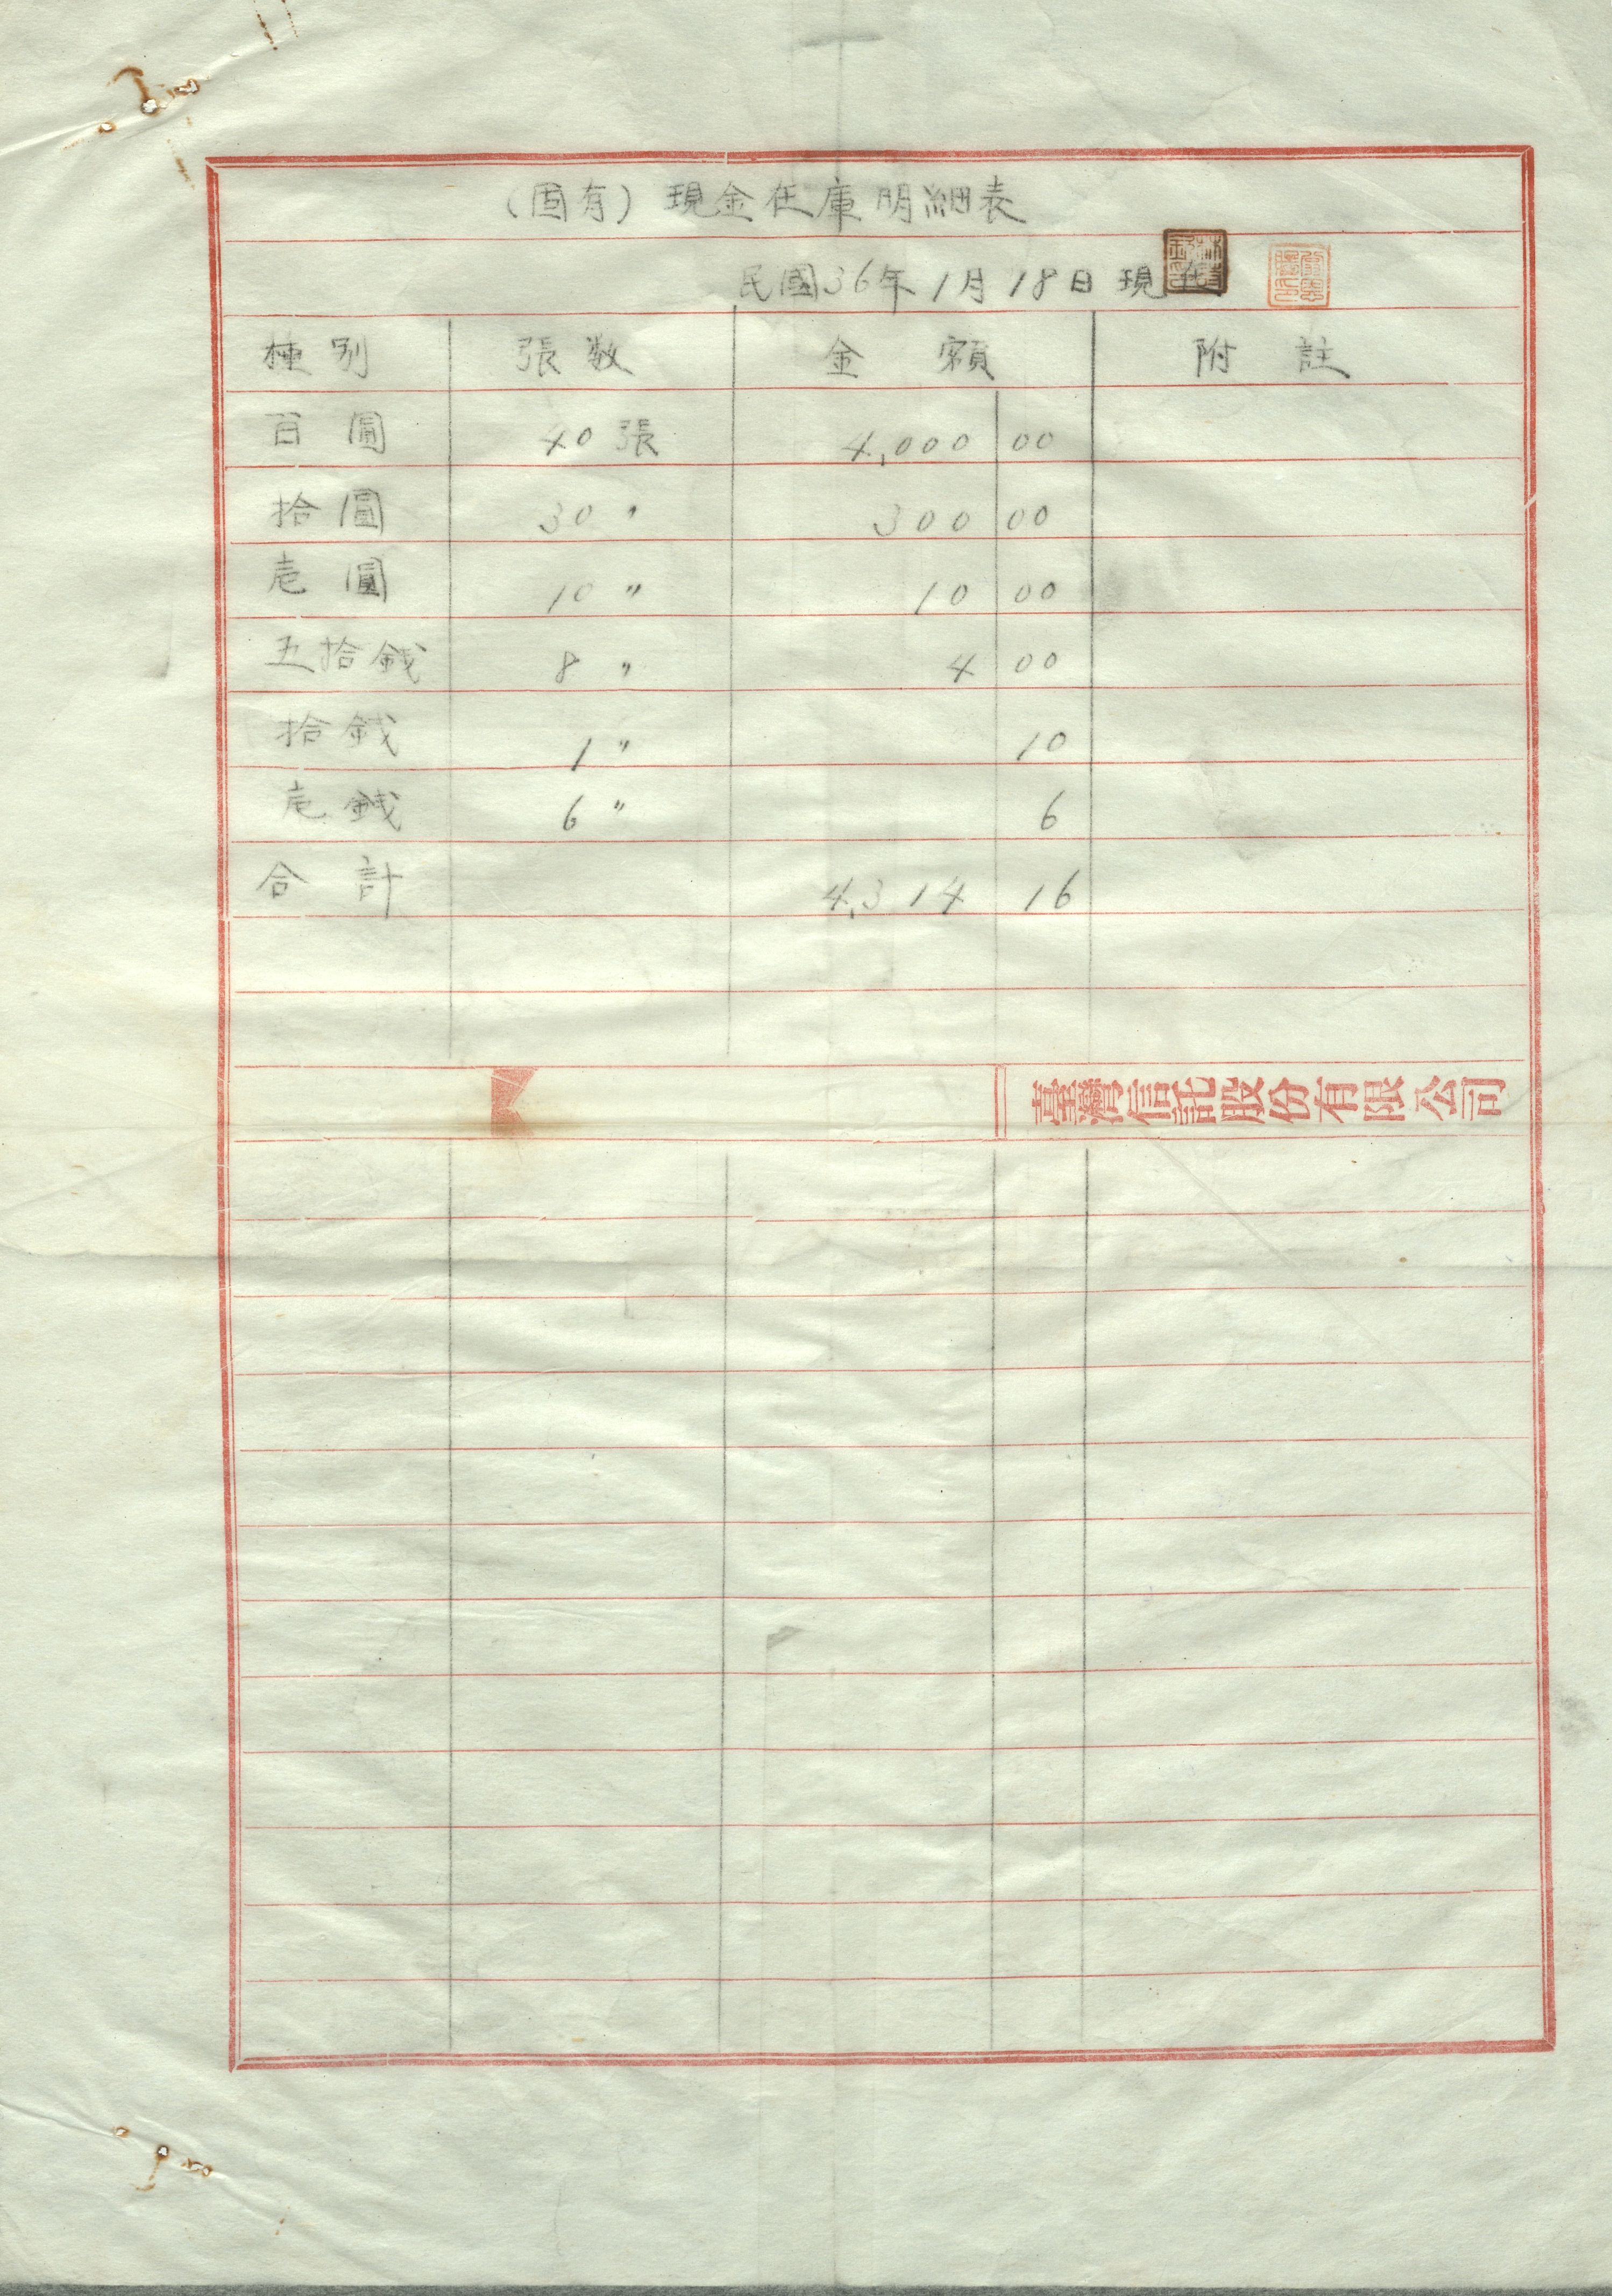 (固有) 現金在庫明細表
民國36年1月18日現在
種別 張数 金額 附註
百圓 40張 4,000 00
拾圓 30〃 300 00
壱圓 10〃 10 00
五拾銭 8〃 4 00
拾銭 1〃 10
壱銭 6〃 6
合計 4,314 16
臺灣信託股份有限公司